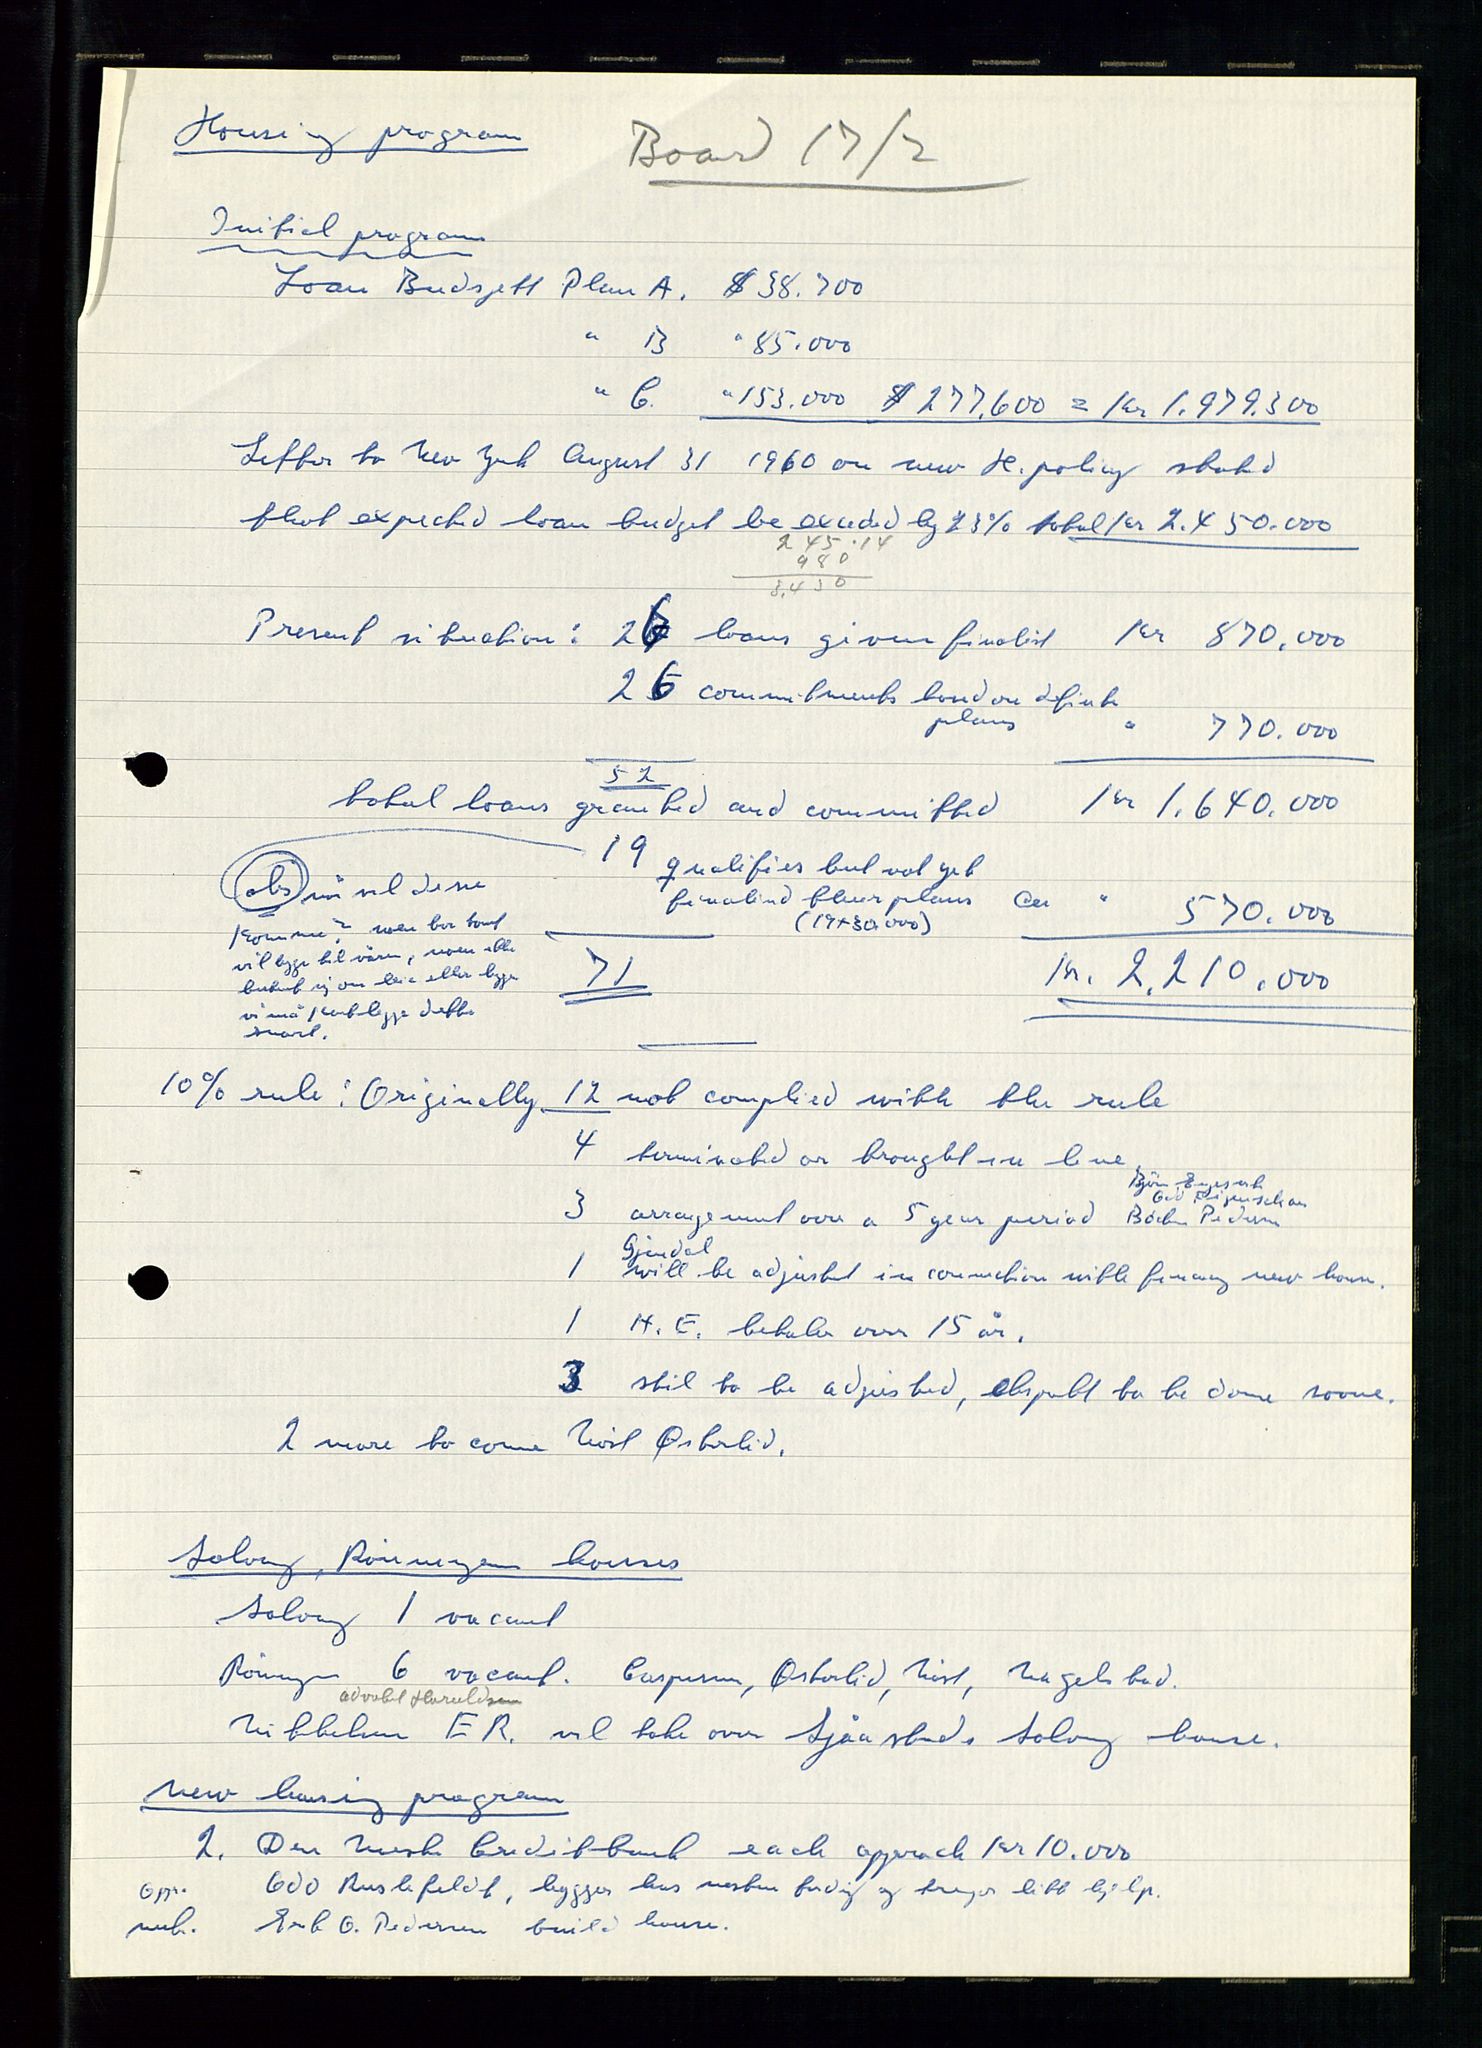 Housing program
Board 17/2
Initial program
Loan Budsjett Plan A. $ 38.700
" B " 85.000
" C. " 153.000 $ 277.600 = Kr 1.979.300
Letter to New York August 31 1960 on new H. policy stated
that expected loan budget be exceded by 23% total Kr 2.450.000
245.14
980
3.430
Present situation: 26 loans given finalist Kr 870.000
26 commitments based on definite
plans " 770.000
52
total loans granted and committed Kr 1.640.000
19 qualifies but not yet
finalized their plans Ca " 570.000
(19x30.000)
71 Kr. 2.210.000
obs når vil disse
komme? noen har tomt
vil bygge til våren, noen ikke
bestemt seg om leie eller bygge
vi må kartlegge dette
snart.
10% rule: Originally 12 not complied with the rule
4 terminated or brought in line.
3 arrangement over a 5 year period
Pedersen
Gjendal
1 will be adjusted in connection with financing new house.
1 H. E. betaler over 15 år.
3 stil to be adjusted, expekt to be done soone.
2 more to come Næst Østerlid.
Solvang, Rönningen houses
Solvang 1 vacant
Röningen 6 vacant. Caspersen, Østerlid, Næst, Nagelstad.
advokat Haraldsen
E R. vil take over Sjåstads Solvang house.
New housing program
2. Den norske Creditbank each approach Kr 10.000
Odd Rustefeldt, bygger hus nesten ferdig og trenger litt hjelp.
Erik O. Pedersen build house.